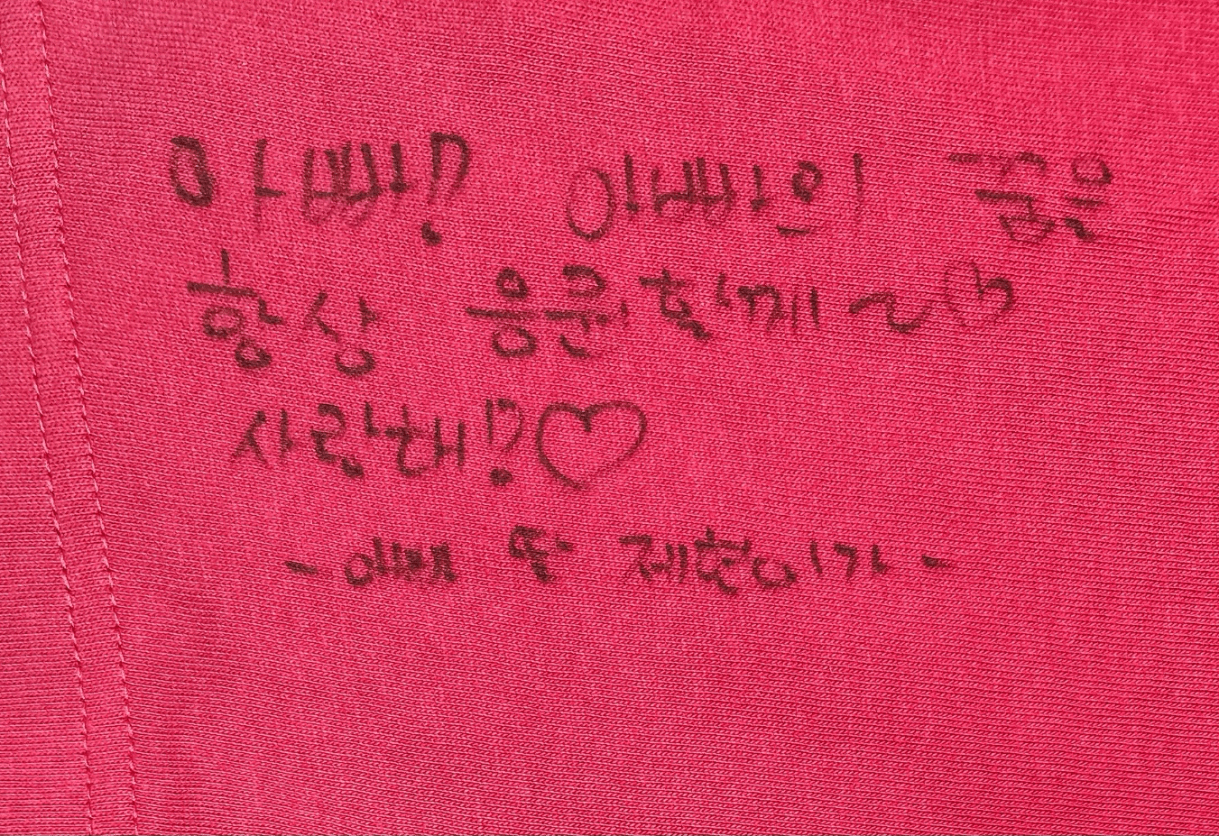 아빠! 아빠의 꿈을
항상 응원할게~♡
사랑해!♡
- 아빠 딸 제현이가 -